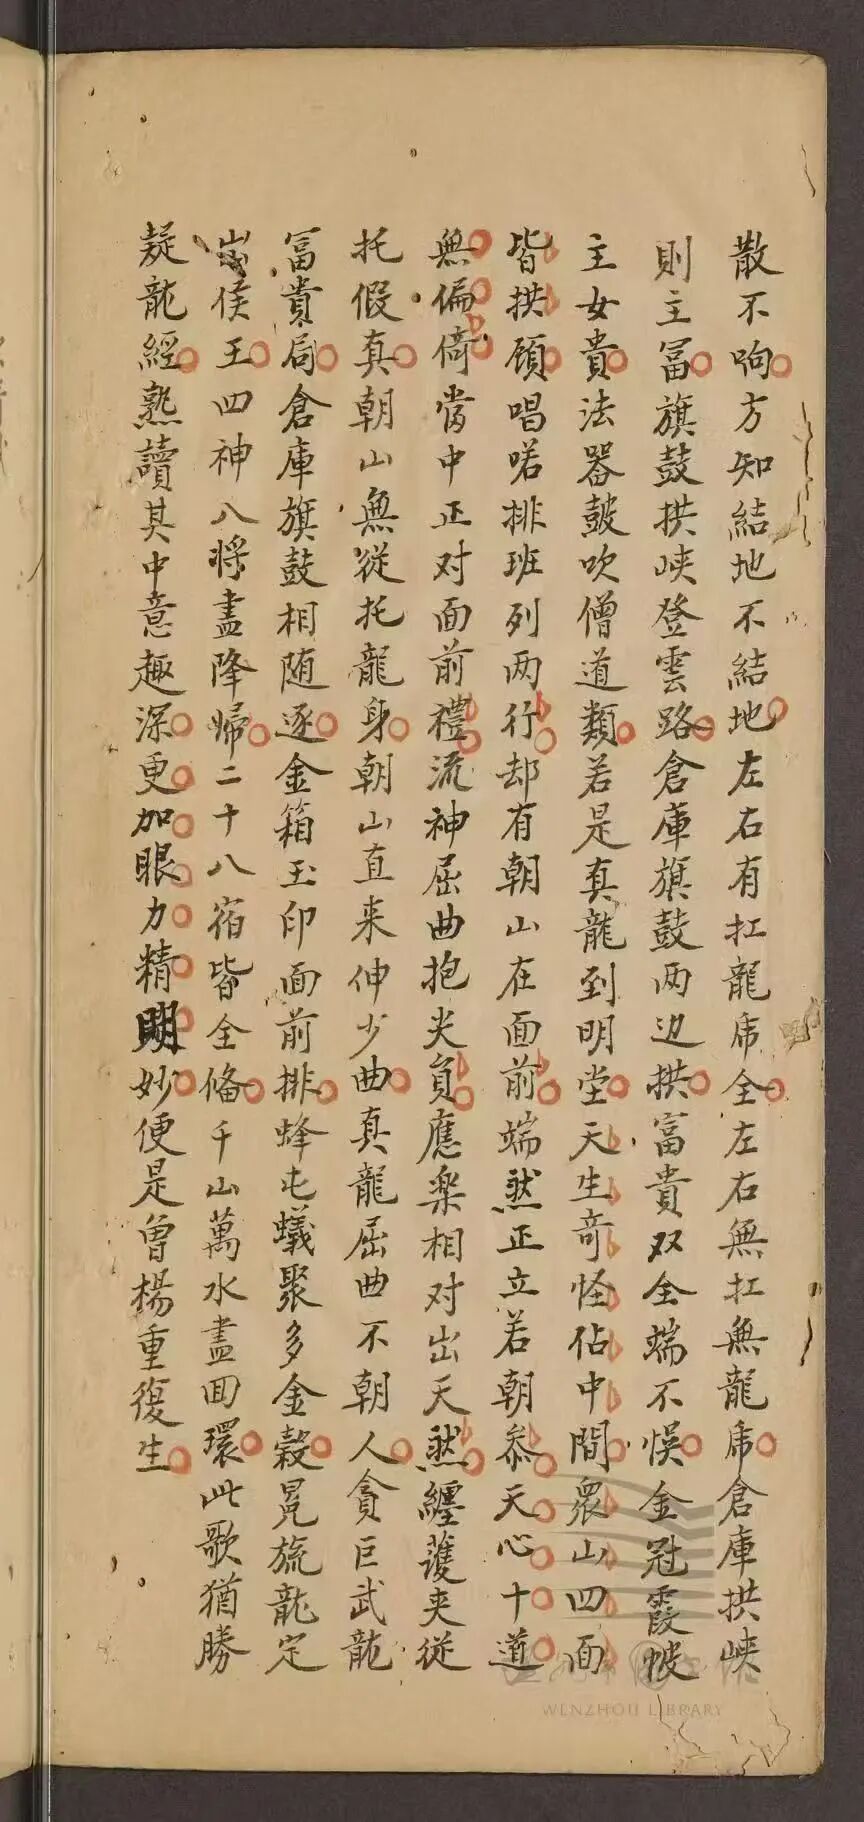 散不响方知結地不結地左右有扛龍虎全左右無扛無龍虎倉庫拱峡
則主冨旗鼓拱峡登雲路倉庫旗鼓两边拱富貴双全端不悮金冠霞帔
主女貴法器鼓吹僧道類若是真龍到明堂天生竒怪佔中間衆山四面
皆拱顾唱喏排班列两行却有朝山在面前端然正立若朝叅天心十道
無偏倚當中正对面前禮流神屈曲抱尖負應樂相对出天然纏護夾従
托假真朝山無従托龍身朝山直来伸少曲真龍屈曲不朝人貪巨武龍
冨貴局倉庫旗鼓相随逐金箱玉印面前排蜂屯蟻聚多金穀冕旒龍定
出侯王四神八将盡降歸二十八宿皆全俻千山萬水盡囬環此歌猶勝
疑龍經熟讀其中意趣深更加眼力精明妙便是曽楊重復生
WENZHOU LIBRARY